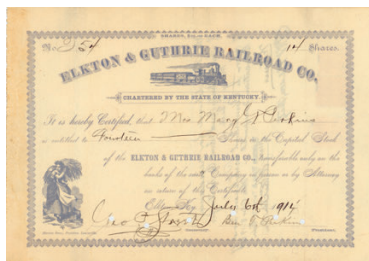 SHARES, $25.00 EACH.
No. 254 14 Shares.
ELKTON & GUTHRIE RAILROAD CO.
CHARTERED BY THE STATE OF KENTUCKY.
It is hereby Certified, that Mrs. Mary W. Perkins
is entitled to Fourteen Shares in the Capital Stock
of the ELKTON & GUTHRIE RAILROAD CO., transferable only on the
books of the said Company in person or by Attorney
on return of this Certificate.
Elkton, Ky. July 6th 1914
Geo. Ben. Perkins